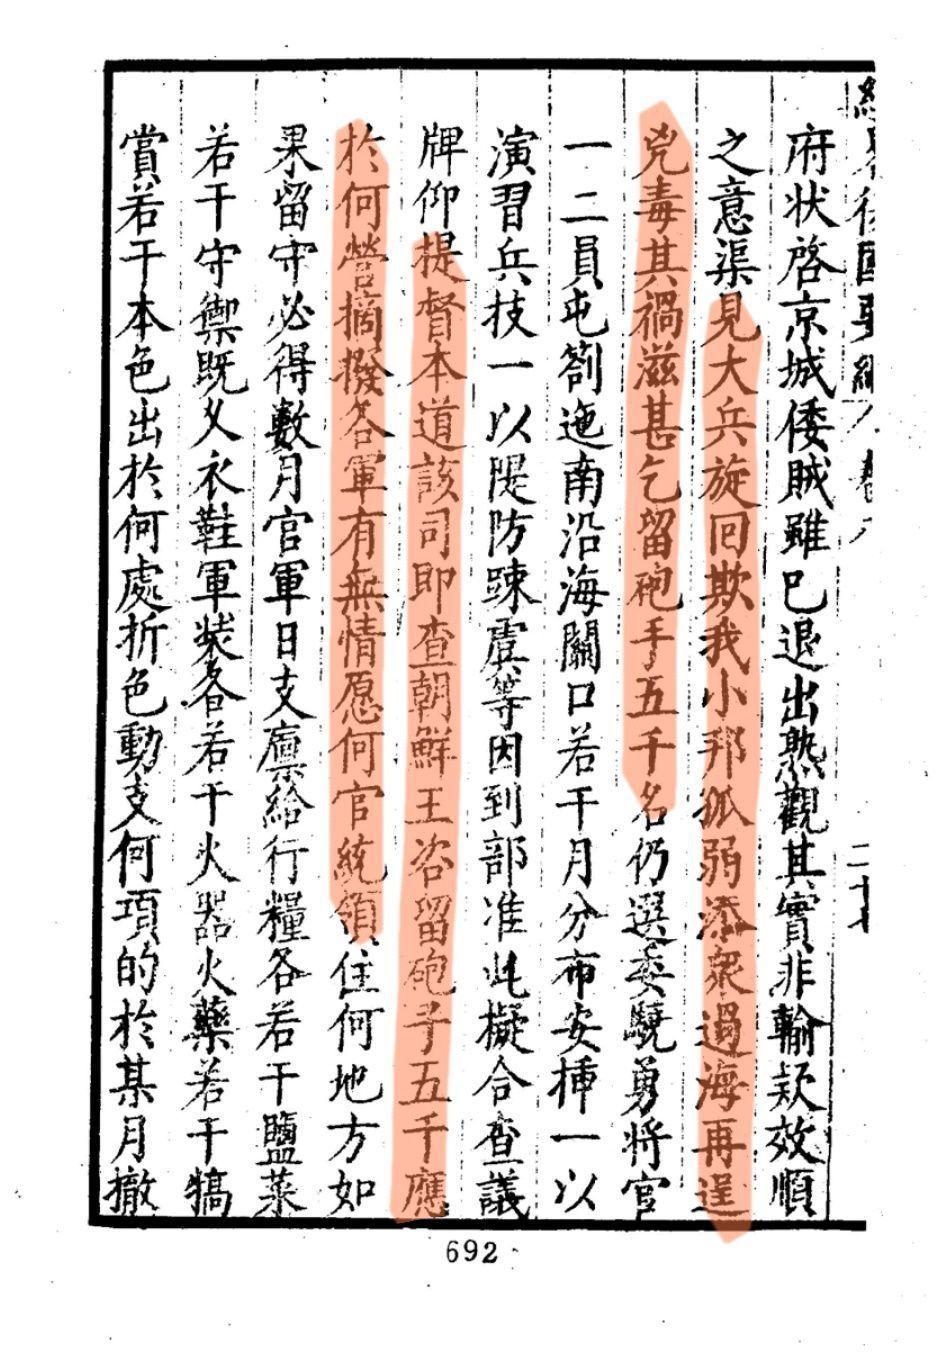 府状啓京城倭賊雖已退出熟觀其實非輸款效順
之意渠見大兵旋回欺我小邦孤弱添衆過海再逞
兇毒其禍滋甚乞留砲手五千名仍選委驍勇將官
一二員屯劄迤南沿海關口若干月分布安揷一以
演習兵技一以隄防踈虞等因到部准此擬合查議
牌仰提督本道該司即查朝鮮王咨留砲手五千應
於何營摘撥各軍有無情愿何官統領住何地方如
果留守必得數月官軍日支廪給行糧各若干鹽菜
若干守禦既久衣鞋軍裝各若干火器火藥若干犒
賞若干本色出於何處折色動支何項的於某月撤
692